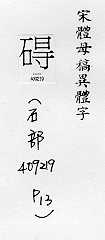 宋體母稿異體字
碍
409219
(石部
409219
P13)